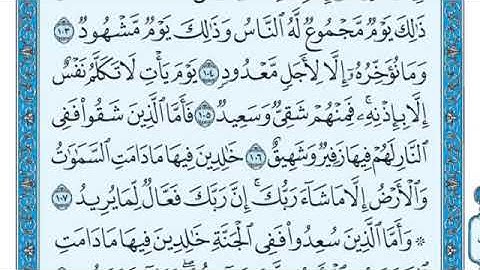 ذَٰلِكَ يَوْمٌ مَّجْمُوعٌ لَّهُ ٱلنَّاسُ وَذَٰلِكَ يَوْمٌ مَّشْهُودٌ ١٠٣
وَمَا نُؤَخِّرُهُۥٓ إِلَّا لِأَجَلٍ مَّعْدُودٍ ١٠٤ يَوْمَ يَأْتِ لَا تَكَلَّمُ نَفْسٌ
إِلَّا بِإِذْنِهِۦۚ فَمِنْهُمْ شَقِىٌّ وَسَعِيدٌ ١٠٥ فَأَمَّا ٱلَّذِينَ شَقُوا۟ فَفِى
ٱلنَّارِ لَهُمْ فِيهَا زَفِيرٌ وَشَهِيقٌ ١٠٦ خَٰلِدِينَ فِيهَا مَا دَامَتِ ٱلسَّمَٰوَٰتُ
وَٱلْأَرْضُ إِلَّا مَا شَآءَ رَبُّكَۚ إِنَّ رَبَّكَ فَعَّالٌ لِّمَا يُرِيدُ ١٠٧
۞ وَأَمَّا ٱلَّذِينَ سُعِدُوا۟ فَفِى ٱلْجَنَّةِ خَٰلِدِينَ فِيهَا مَا دَامَتِ